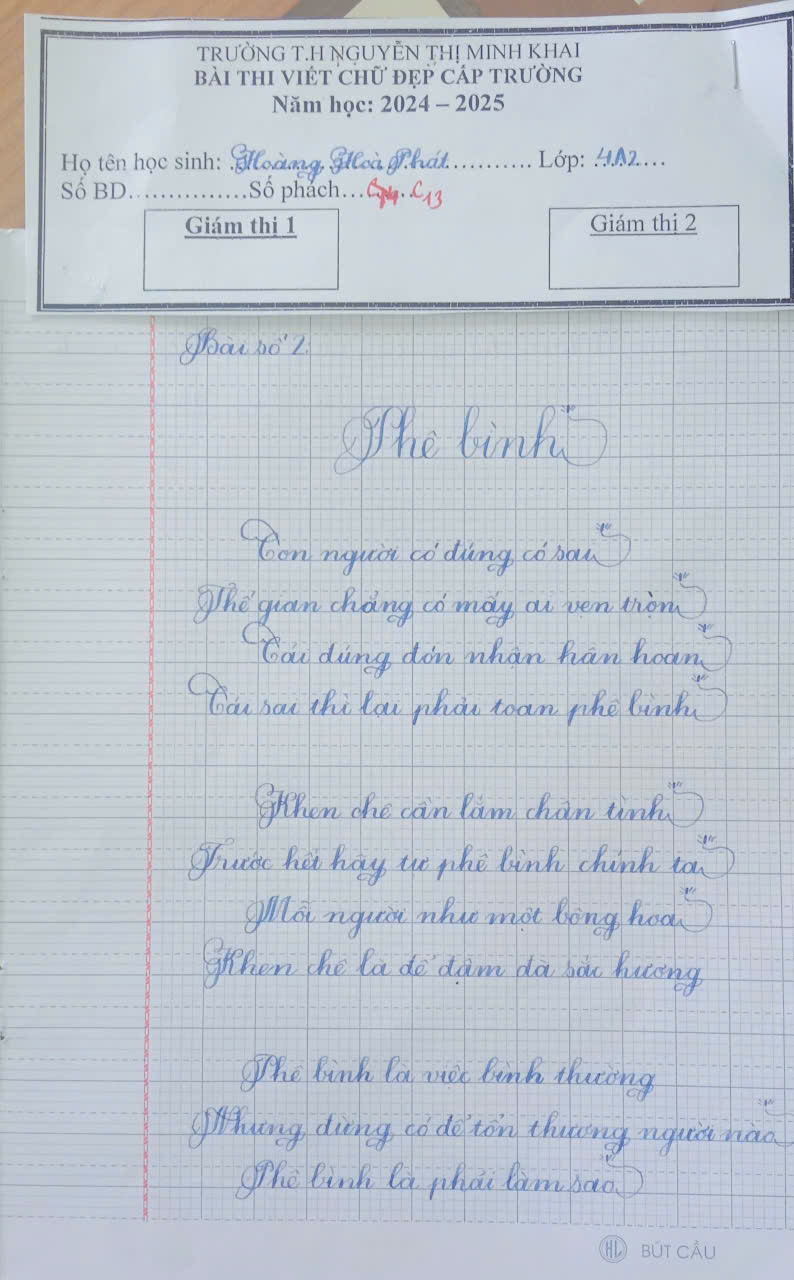 TRƯỜNG T.H NGUYỄN THỊ MINH KHAI
BÀI THI VIẾT CHỮ ĐẸP CẤP TRƯỜNG
Năm học: 2024 – 2025
Họ tên học sinh: Hoàng Hoà Phát............ Lớp: 4A2....
Số BD...............Số phách... C13
Giám thị 1
Giám thị 2
Bài số 2:
Phê bình
Con người có đúng có sai
Thế gian chẳng có mấy ai vẹn tròn
Cái đúng đón nhận hân hoan
Cái sai thì lại phải toan phê bình
Khen chê cần lắm chân tình
Trước hết hãy tự phê bình chính ta
Mỗi người như một bông hoa
Khen chê là để đậm đà sắc hương
Phê bình là việc bình thường
Nhưng đừng có để tổn thương người nào
Phê bình là phải làm sao
HL BÚT CẦU